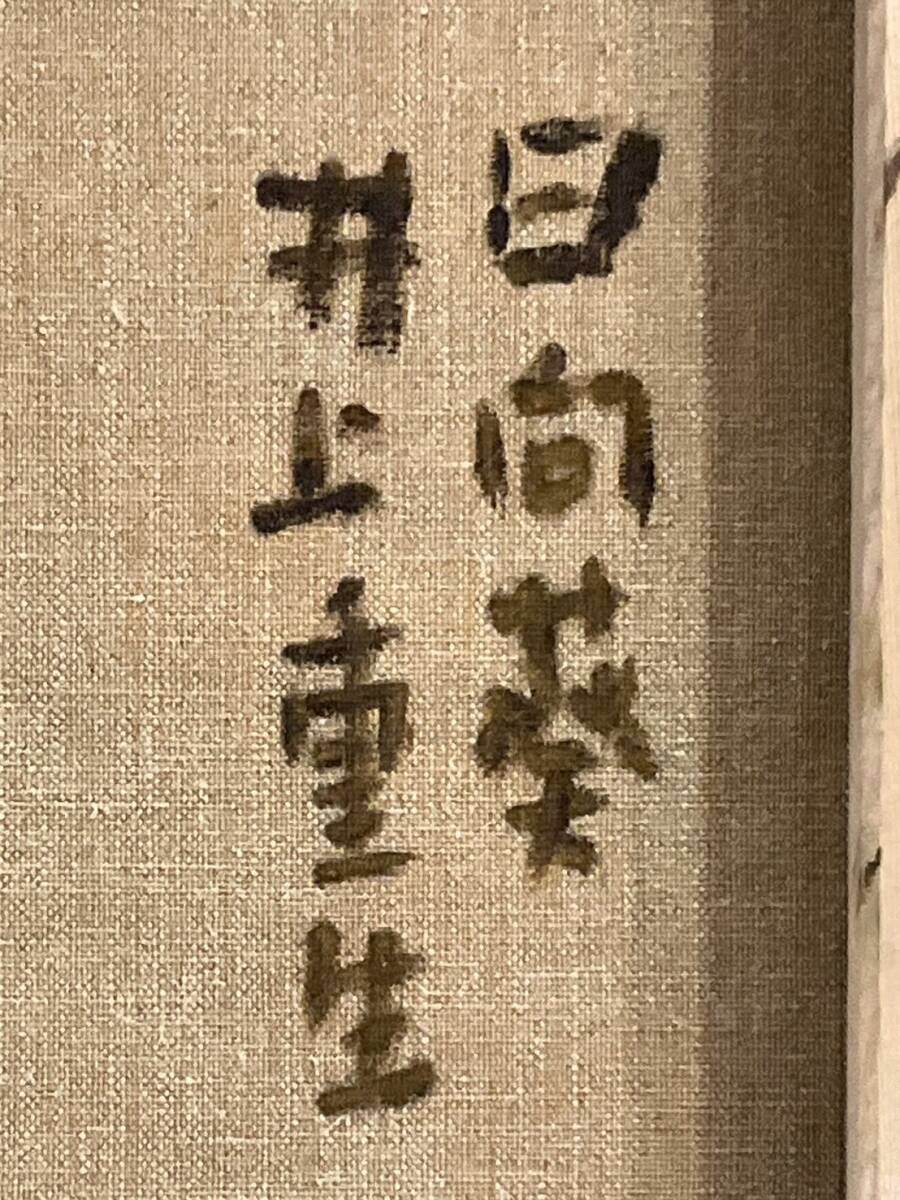 日向葵
井上重生